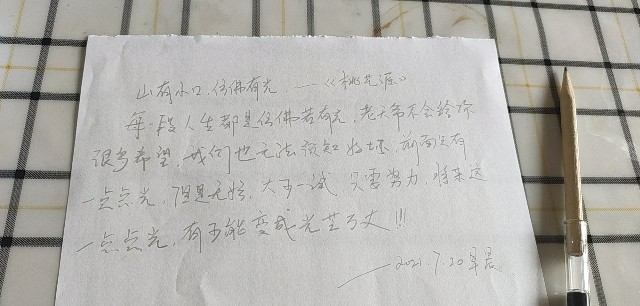 山有小口,仿佛有光 ——《桃花源》
每一段人生都是仿佛若有光,老天爷不会给你
很多希望,我们也无法预知好坏,前面只有
一点点光,但是无妨,大可一试,只要努力,将来这
一点点光,有可能变成光芒万丈!!!
——2021.7.20早晨